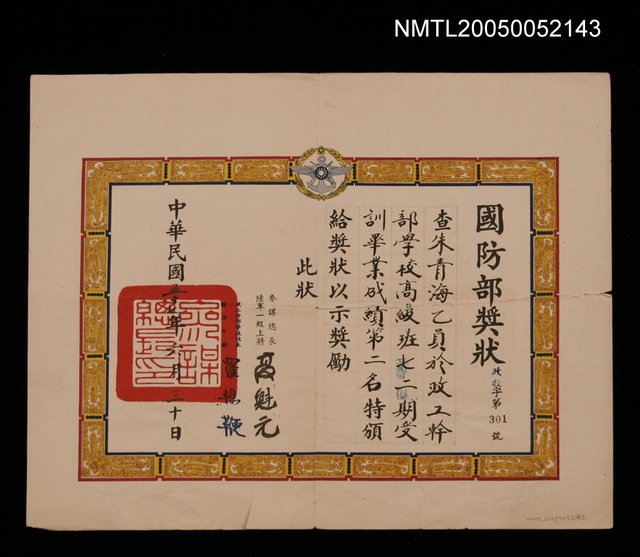 NMTL20050052143
國防部獎狀
政教字第301號
查朱青海乙員於政工幹
部學校高級班七二期受
訓畢業成績第二名特頒
給獎狀以示獎勵
此狀
參謀總長
陸軍一級上將
高魁元
羅揚鞭
中華民國五十年六月三十日
參謀總長印
NMTL20050052143